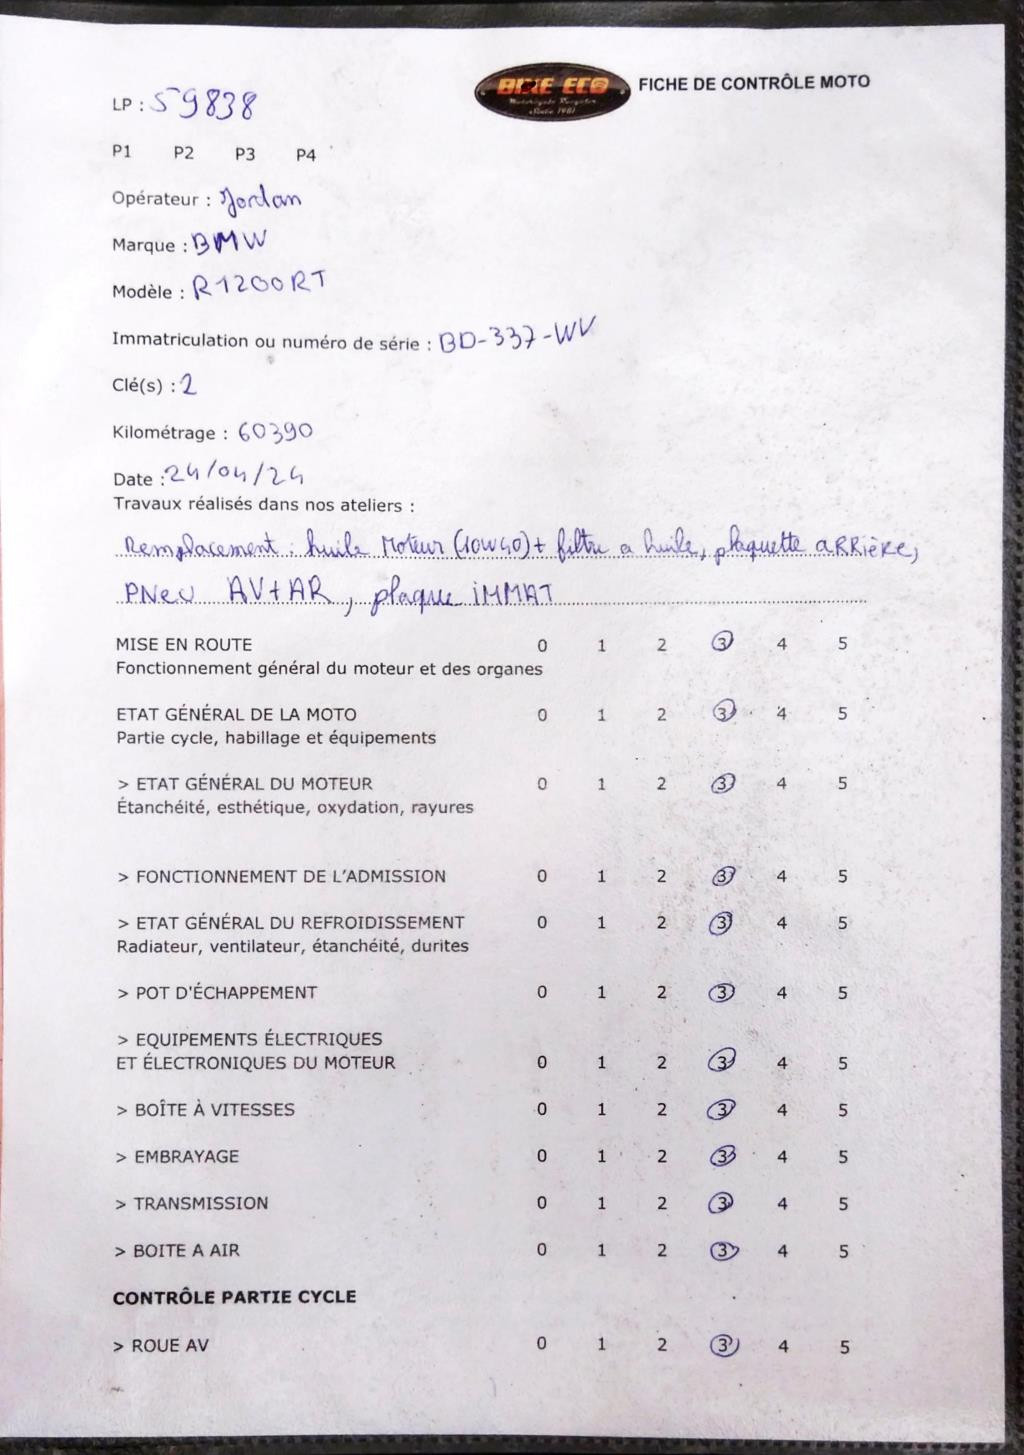 BIKE ECO
Motorcycle Recycler
Since 1981
FICHE DE CONTRÔLE MOTO
LP : 59838
P1 P2 P3 P4
Opérateur : Jordan
Marque : BMW
Modèle : R1200RT
Immatriculation ou numéro de série : BD-337-WV
Clé(s) : 2
Kilométrage : 60390
Date : 24/04/24
Travaux réalisés dans nos ateliers :
Remplacement : huile Moteur (10W40) + filtre a huile, plaquette ARRière,
PNeu AV+AR, plaque iMMAT
MISE EN ROUTE 0 1 2 3 4 5
Fonctionnement général du moteur et des organes
ETAT GÉNÉRAL DE LA MOTO 0 1 2 3 4 5
Partie cycle, habillage et équipements
> ETAT GÉNÉRAL DU MOTEUR 0 1 2 3 4 5
Étanchéité, esthétique, oxydation, rayures
> FONCTIONNEMENT DE L'ADMISSION 0 1 2 3 4 5
> ETAT GÉNÉRAL DU REFROIDISSEMENT 0 1 2 3 4 5
Radiateur, ventilateur, étanchéité, durites
> POT D'ÉCHAPPEMENT 0 1 2 3 4 5
> EQUIPEMENTS ÉLECTRIQUES
ET ÉLECTRONIQUES DU MOTEUR 0 1 2 3 4 5
> BOÎTE À VITESSES 0 1 2 3 4 5
> EMBRAYAGE 0 1 2 3 4 5
> TRANSMISSION 0 1 2 3 4 5
> BOITE A AIR 0 1 2 3 4 5
CONTRÔLE PARTIE CYCLE
> ROUE AV 0 1 2 3 4 5